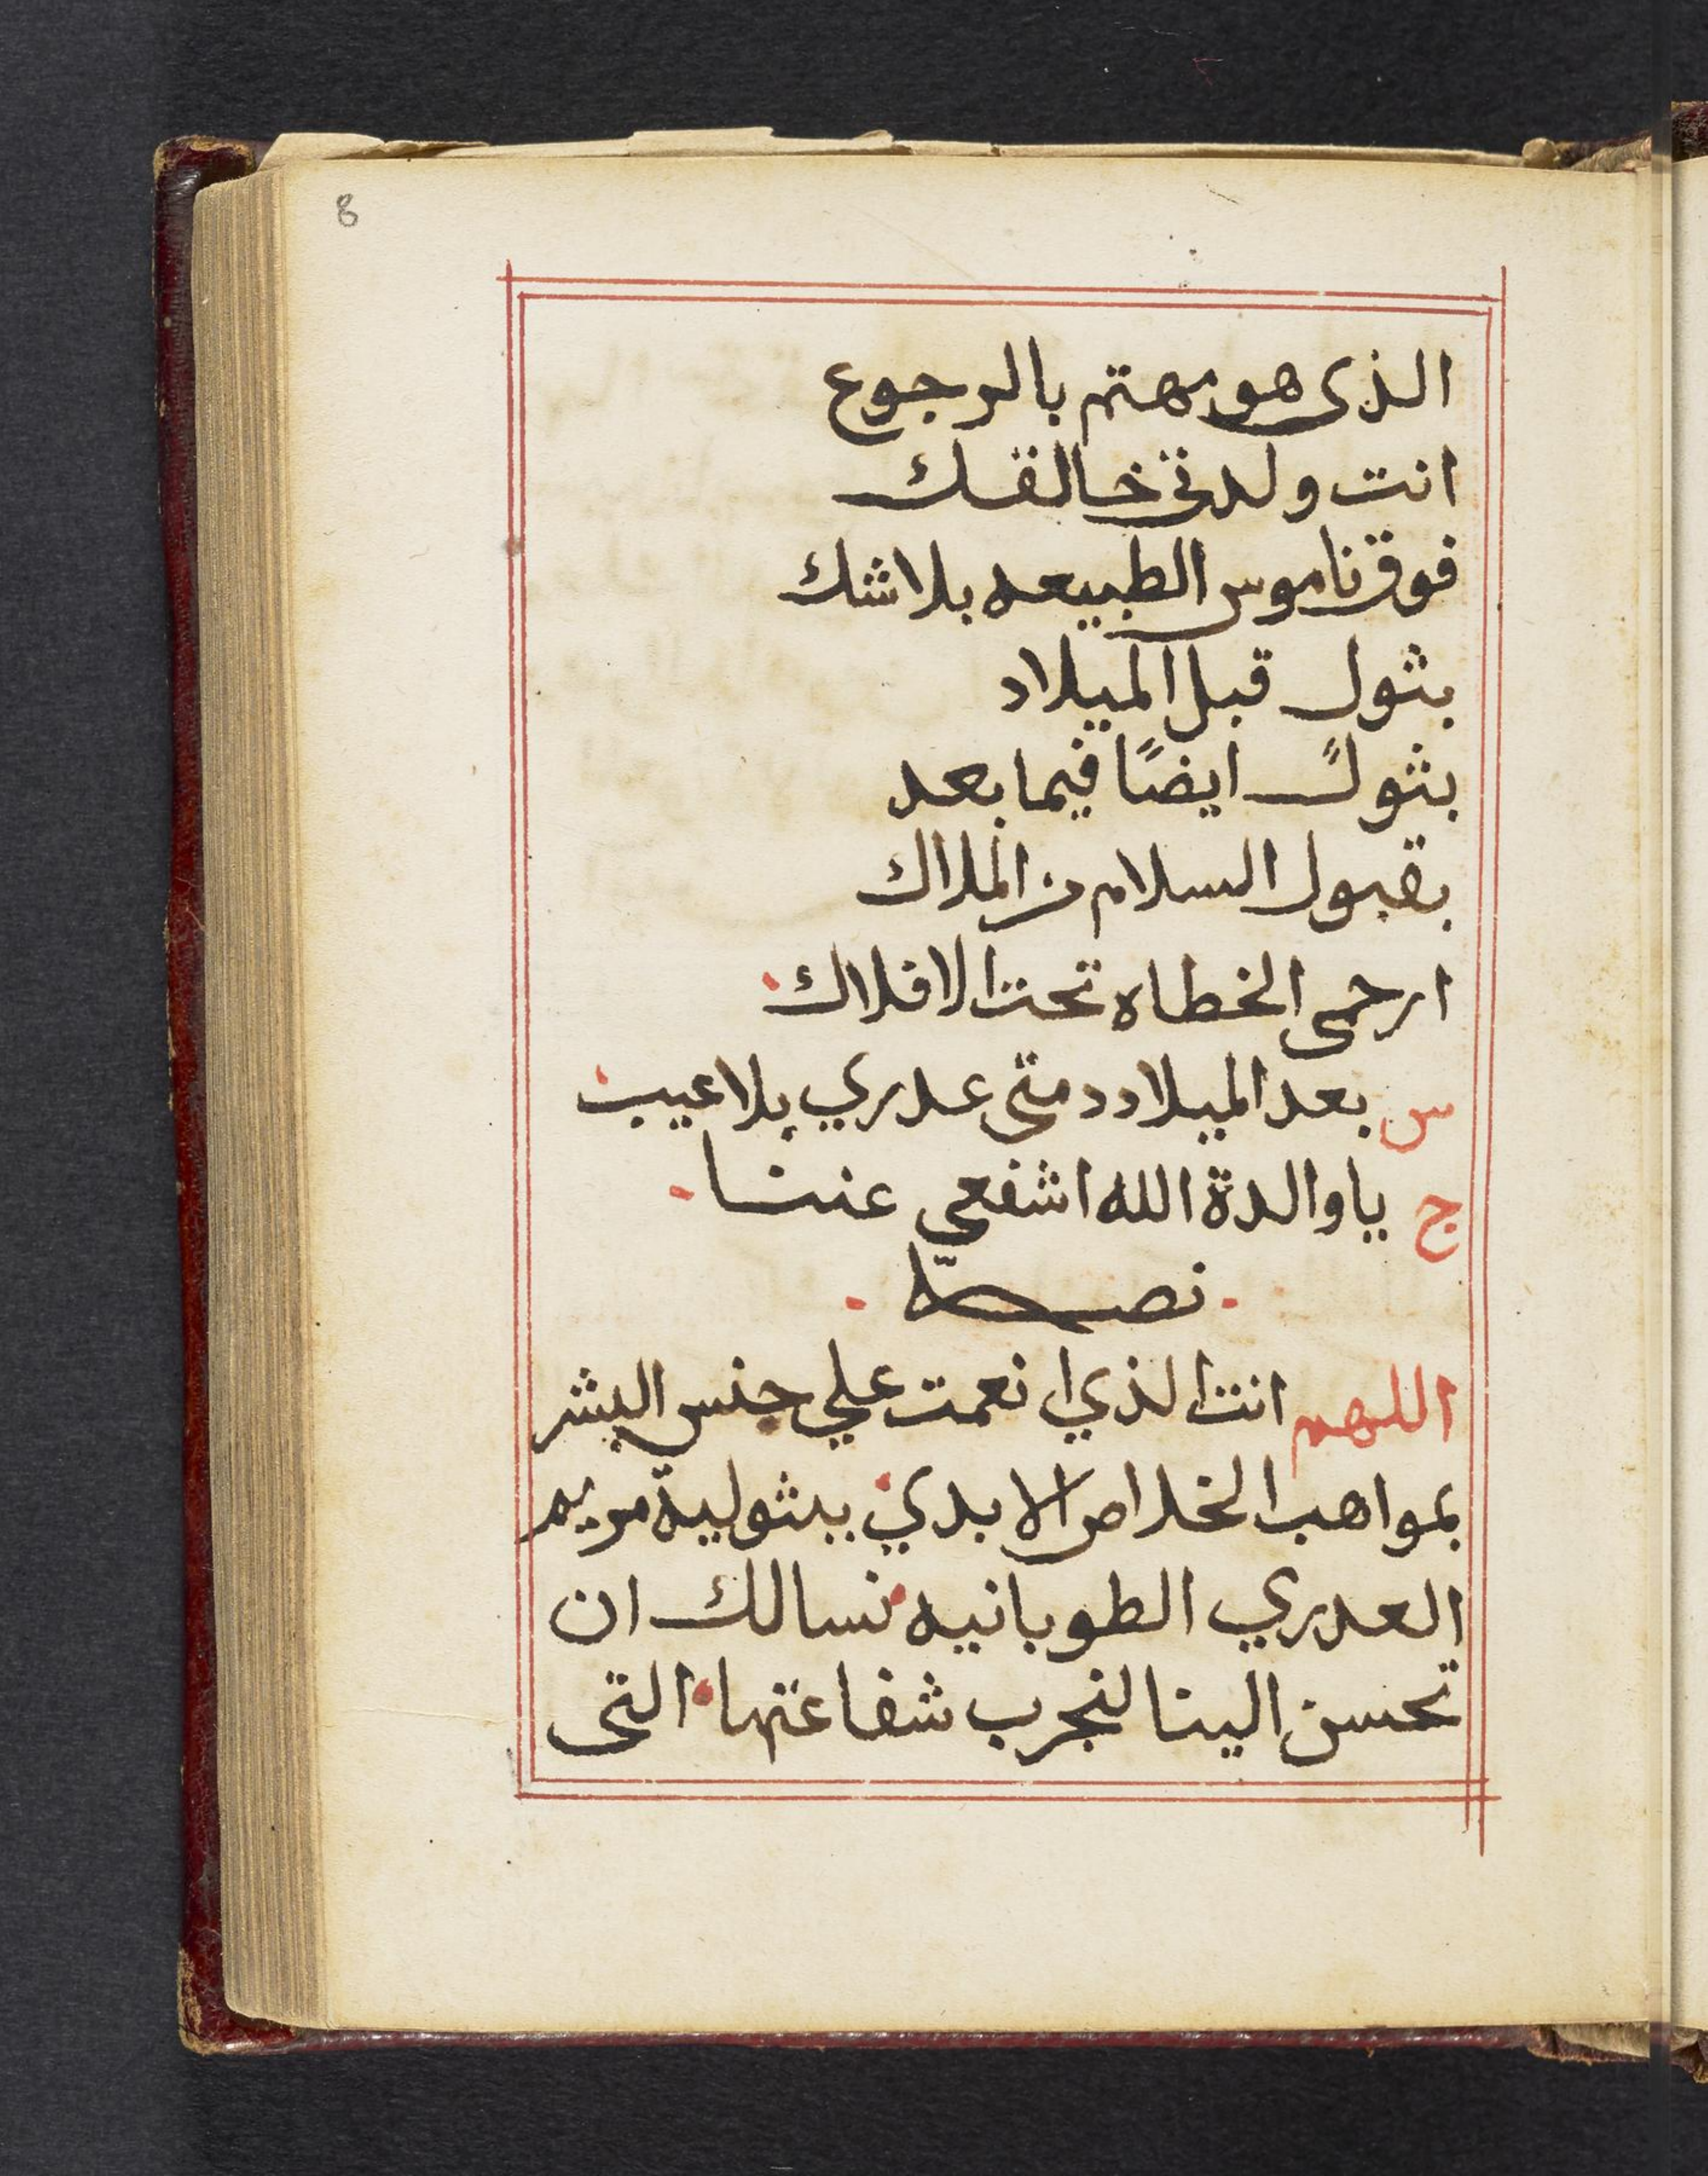 8
الذى هو مهتم بالرجوع
انت ولدتى خالقك
فوق ناموس الطبيعه بلا شك
بثول قبل الميلاد
بثولً ايضًا فيما بعد
بقبول السلام من الملاك
ارحمى الخطاه تحت الافلاك
س بعد الميلاد دمتى عدري بلا عيب
ج يا والدة الله اشفعي عننا
نصلّى
اللهم انت الذي انعمت علي جنس البشر
بمواهب الخلاص الابدي ببثولية مريم
العدري الطوبانيه نسالك ان
تحسن الينا لنجرب شفاعتها التى